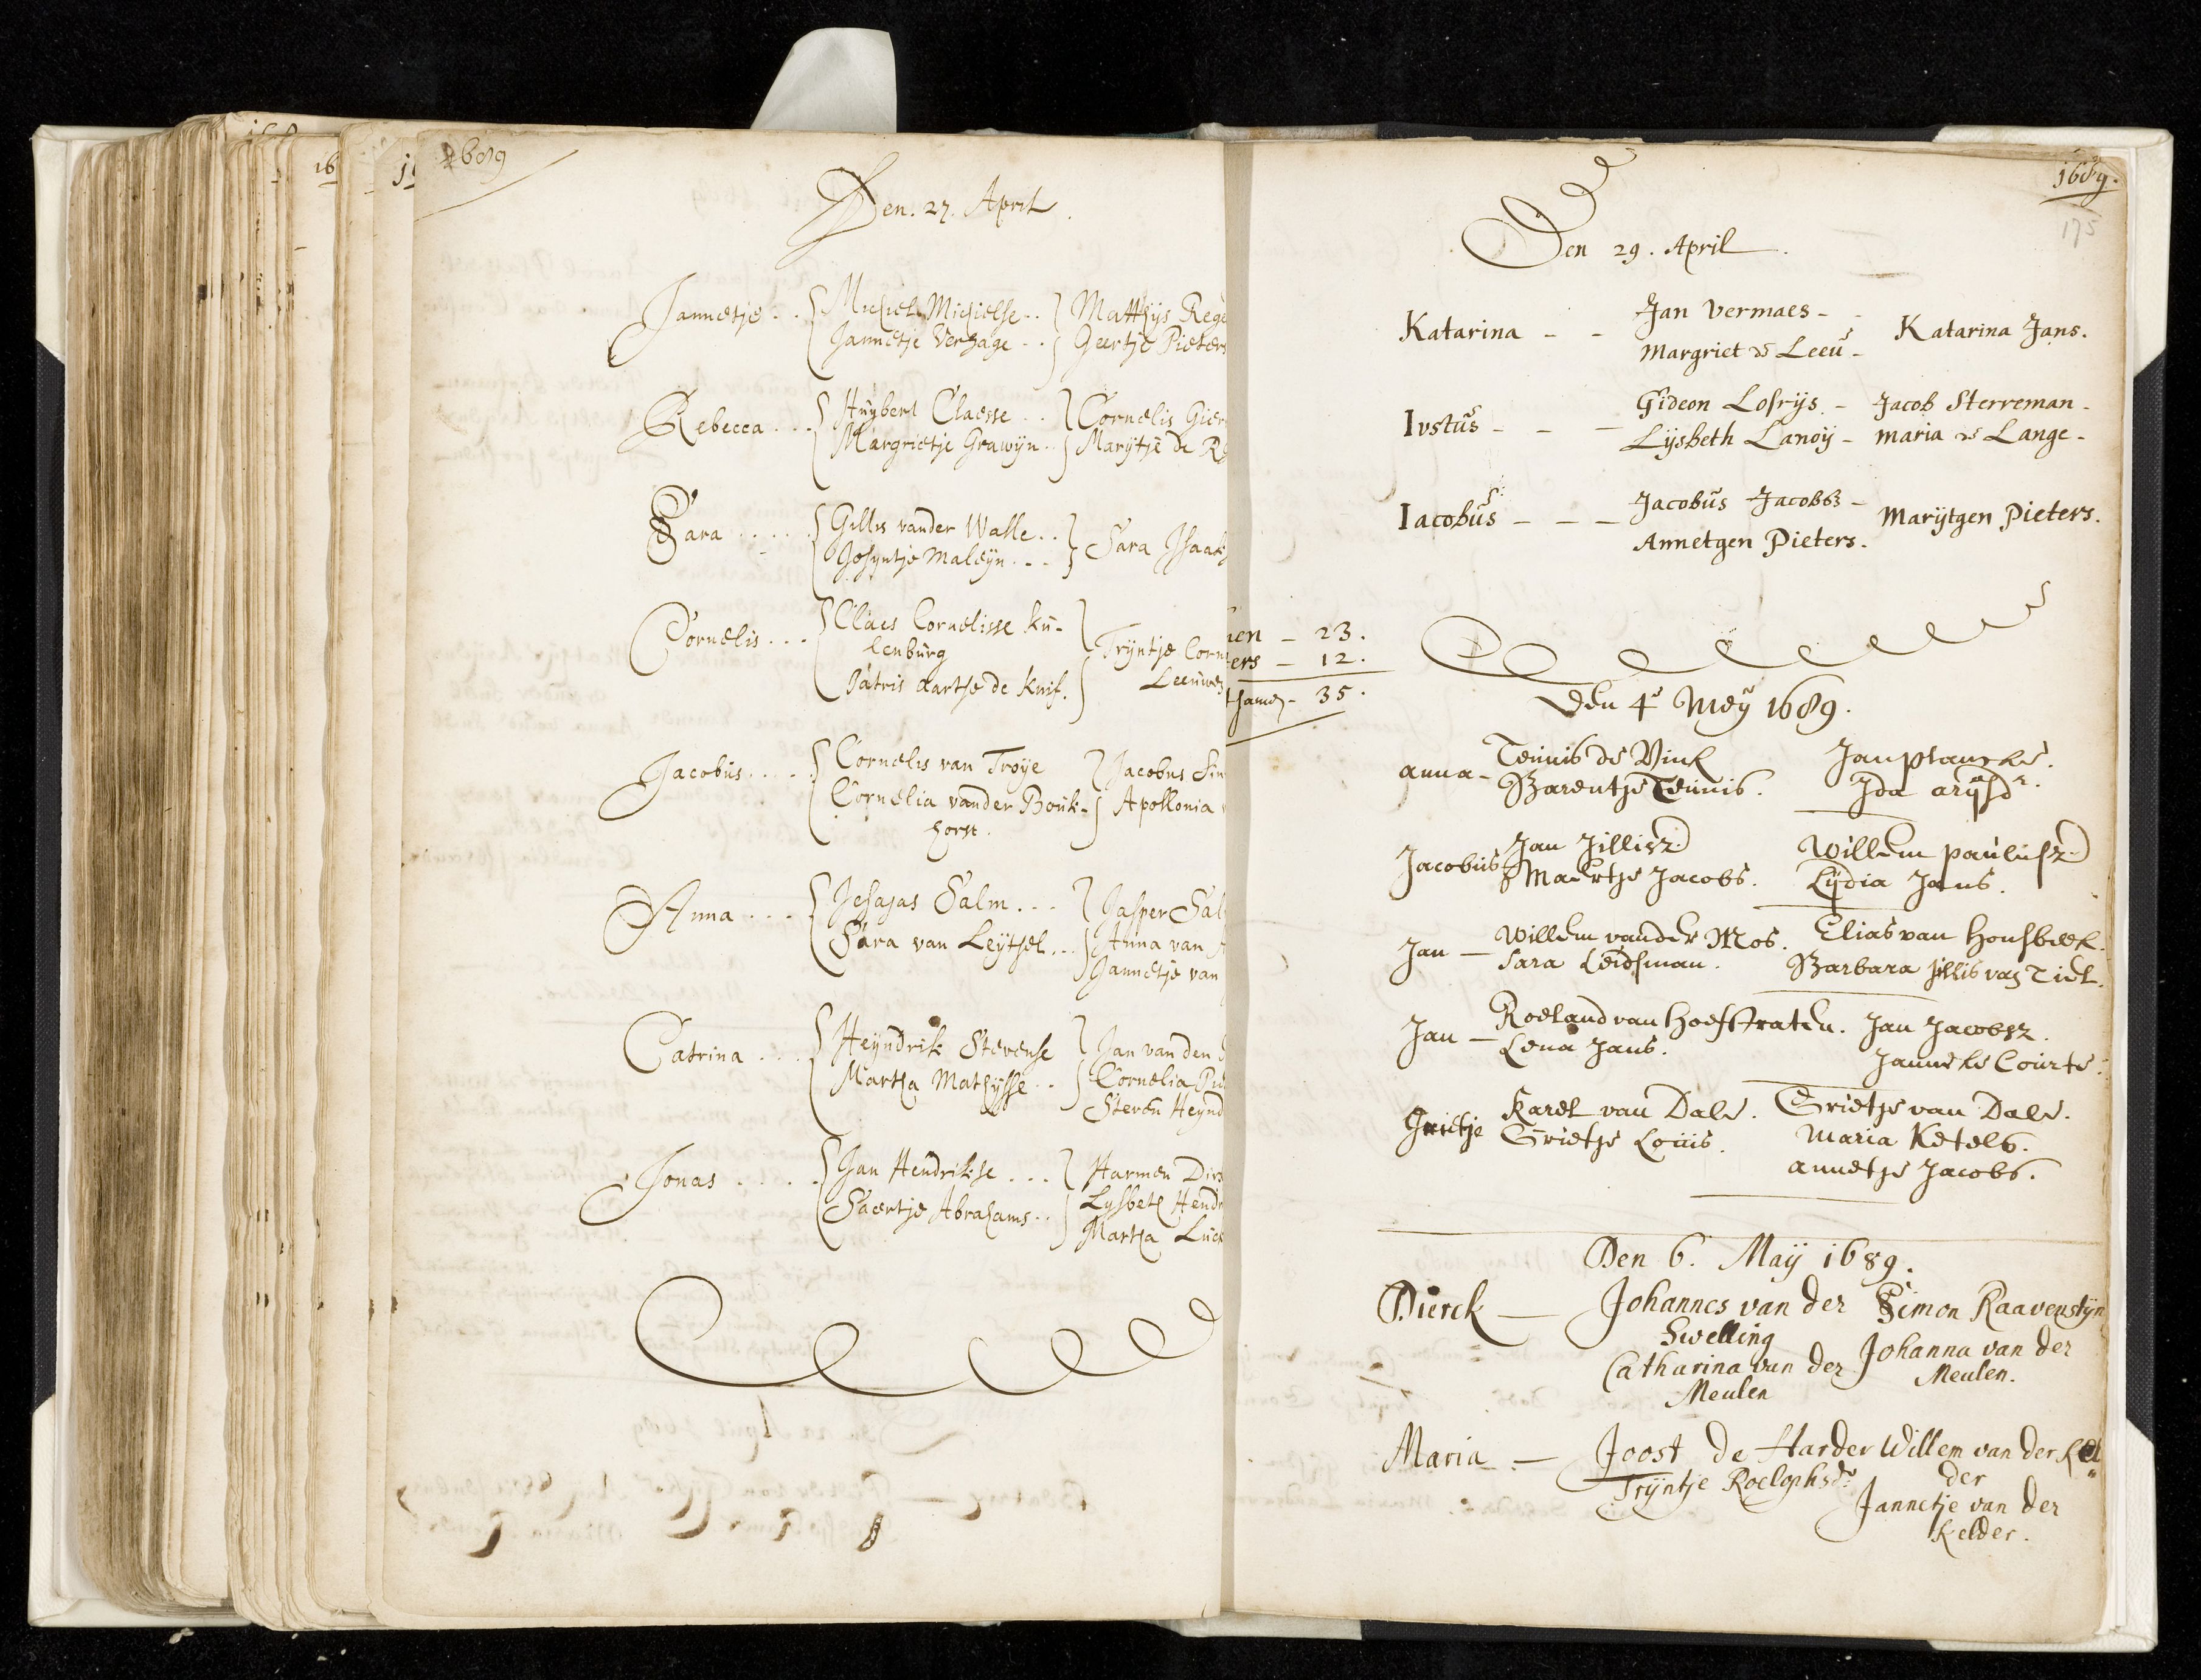 1689
Den. 27. April.
Jannetje . . Michiel Michielse . . Matthys Rege
Jannetje Verhage . . Geertje Pieters
Rebecca . . . Huybert Claesse . . Cornelis Gier
Margrietje Grawyn . . Marytje de Re
Sara . . . . . Gillis vander Walle . . Sara Isaak
Josyntje Maleyn . . .
Cornelis . . . Claes Cornelisse Ku-
lenburg
Tryntje Corn
Jatris Aartse de Knif. Leeuwe
Jacobus . . . . Cornelis van Troye Jacobus Sin
Cornelia vander Bouk- Apollonia
horst.
Anna . . . . Jesajas Salm . . . Jasper Sal
Sara van Leytsel . . . Anna van
Jannetje van
Catrina . . . . Heyndrik Stevense Jan van den
Martha Mathysse . . Cornelia Pie
Steven Heynd
Jonas . . . . . Jan Hendrikse . . . Harmen Dirs
Saertje Abrahams . . Lysbeth Hendr
Martha Luck
1689.
175
Den 29. April.
Katarina - - Jan Vermaes - Katarina Jans.
Margriet de Leeu -
Iustus - - - Gideon Lofrijs. - Jacob Sterreman -
Lijsbeth Lanoij - maria de Lange -
Iacobus - - - Jacobus Jacobs - Marijtgen Pieters.
Annetgen Pieters.
nen - 23.
ters - 12.
tsamen - 35.
Den 4e Meij 1689.
anna - Teunis de Vink Jan Plancke.
Barentje Teunis. Ida arijsdr.
Jacobus Jan Jillisz Willem paulusz
Maertje Jacobs. Lijdia Jans.
Jan - Willem vander Mos. Elias van Housbeek.
Sara Leidsman. Barbara Jillis van Tiel.
Jan - Roeland van Hoefstraten. Jan Jacobsz.
Lena Jans. Janneke Courte.
Grietje Karel van Dale. Grietje van Dale.
Grietje Louis. Maria Ketels.
annetje Jacobs.
Den 6. Maij 1689.
Dierck - Johannes van der Simon Raavenstijn
Swelling
Catharina van der Johanna van der
Meulen Meulen.
Maria - Joost de Harder Willem van der Kel
Trijntje Roelophsdr. der
Jannetje van der
Kelder.